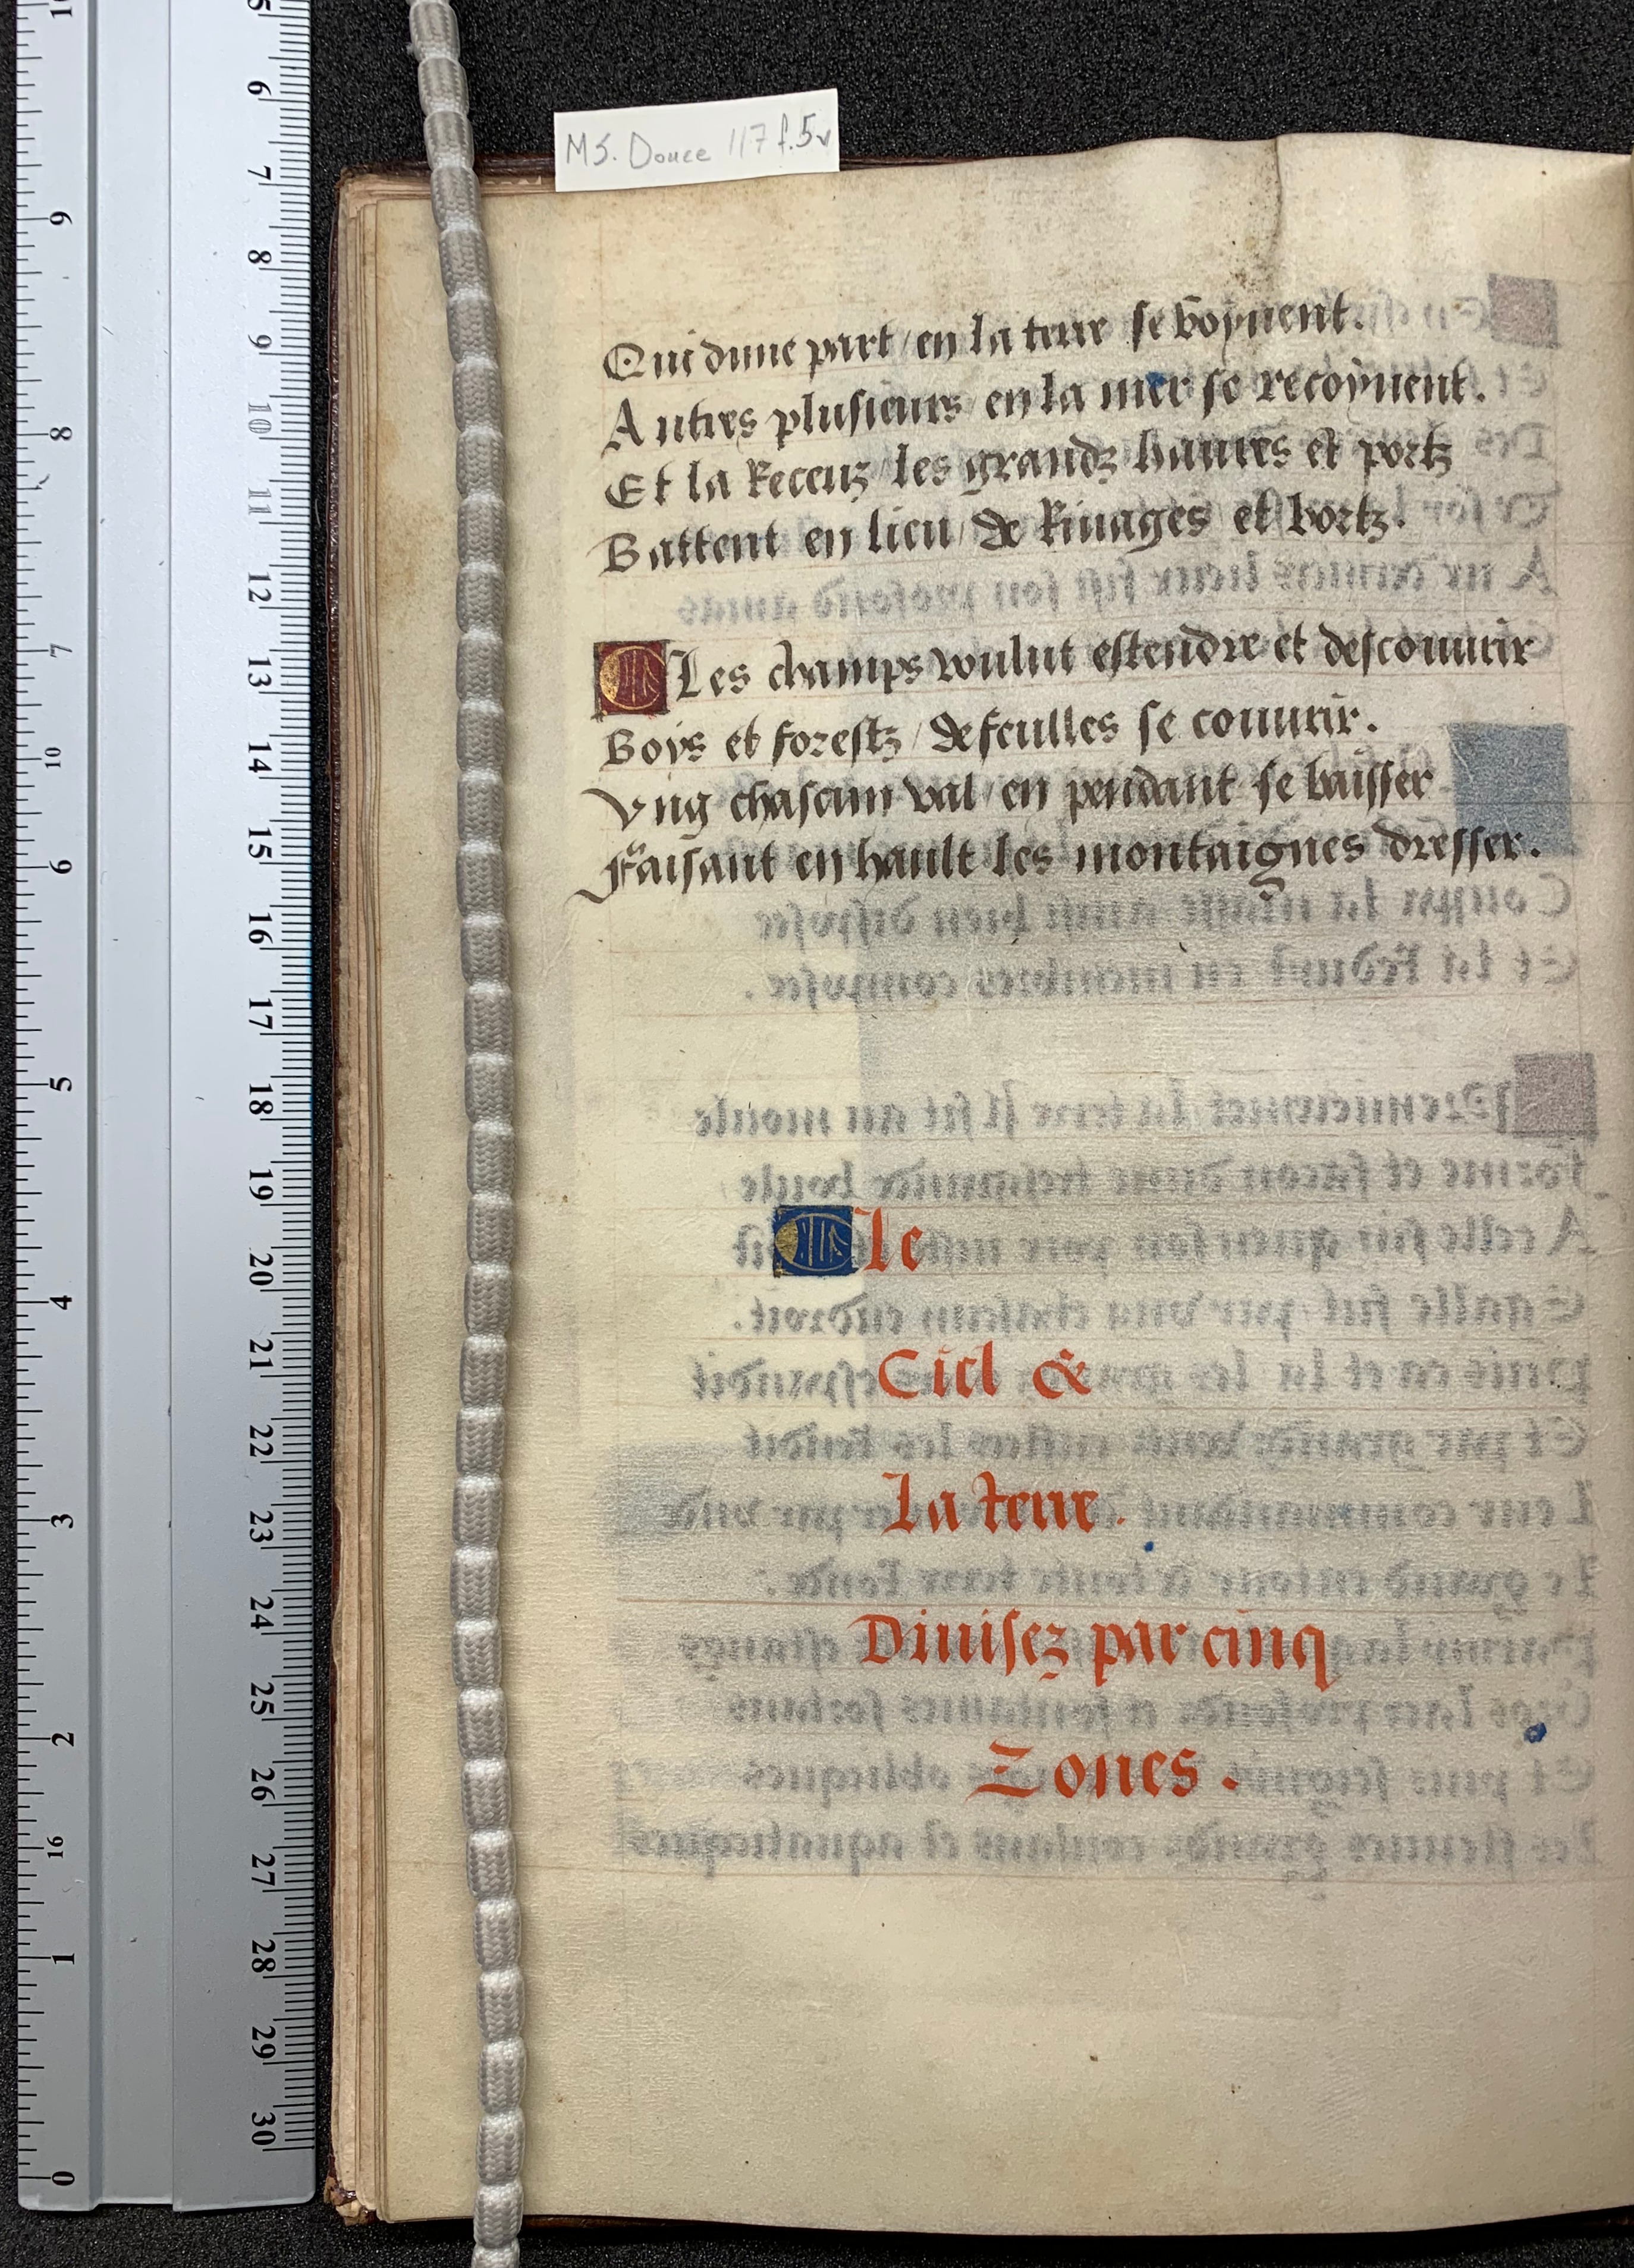 MS. Douce 117 f.5v
Qui dune part / en la terre se boyuent.
Autres plusieurs / en la mer se recoyuent.
Et la Receuz / les grandz haures et portz
Battent en lieu / de Riuages et bortz.
Les champs voulut estendre et descouurir
Boys et forestz / de feulles se couurir.
Vng chascun val / en pendant se baisser
Faisant en hault les montaignes dresser.
Le
Ciel &
La terre.
Diuisez par cinq
Zones.